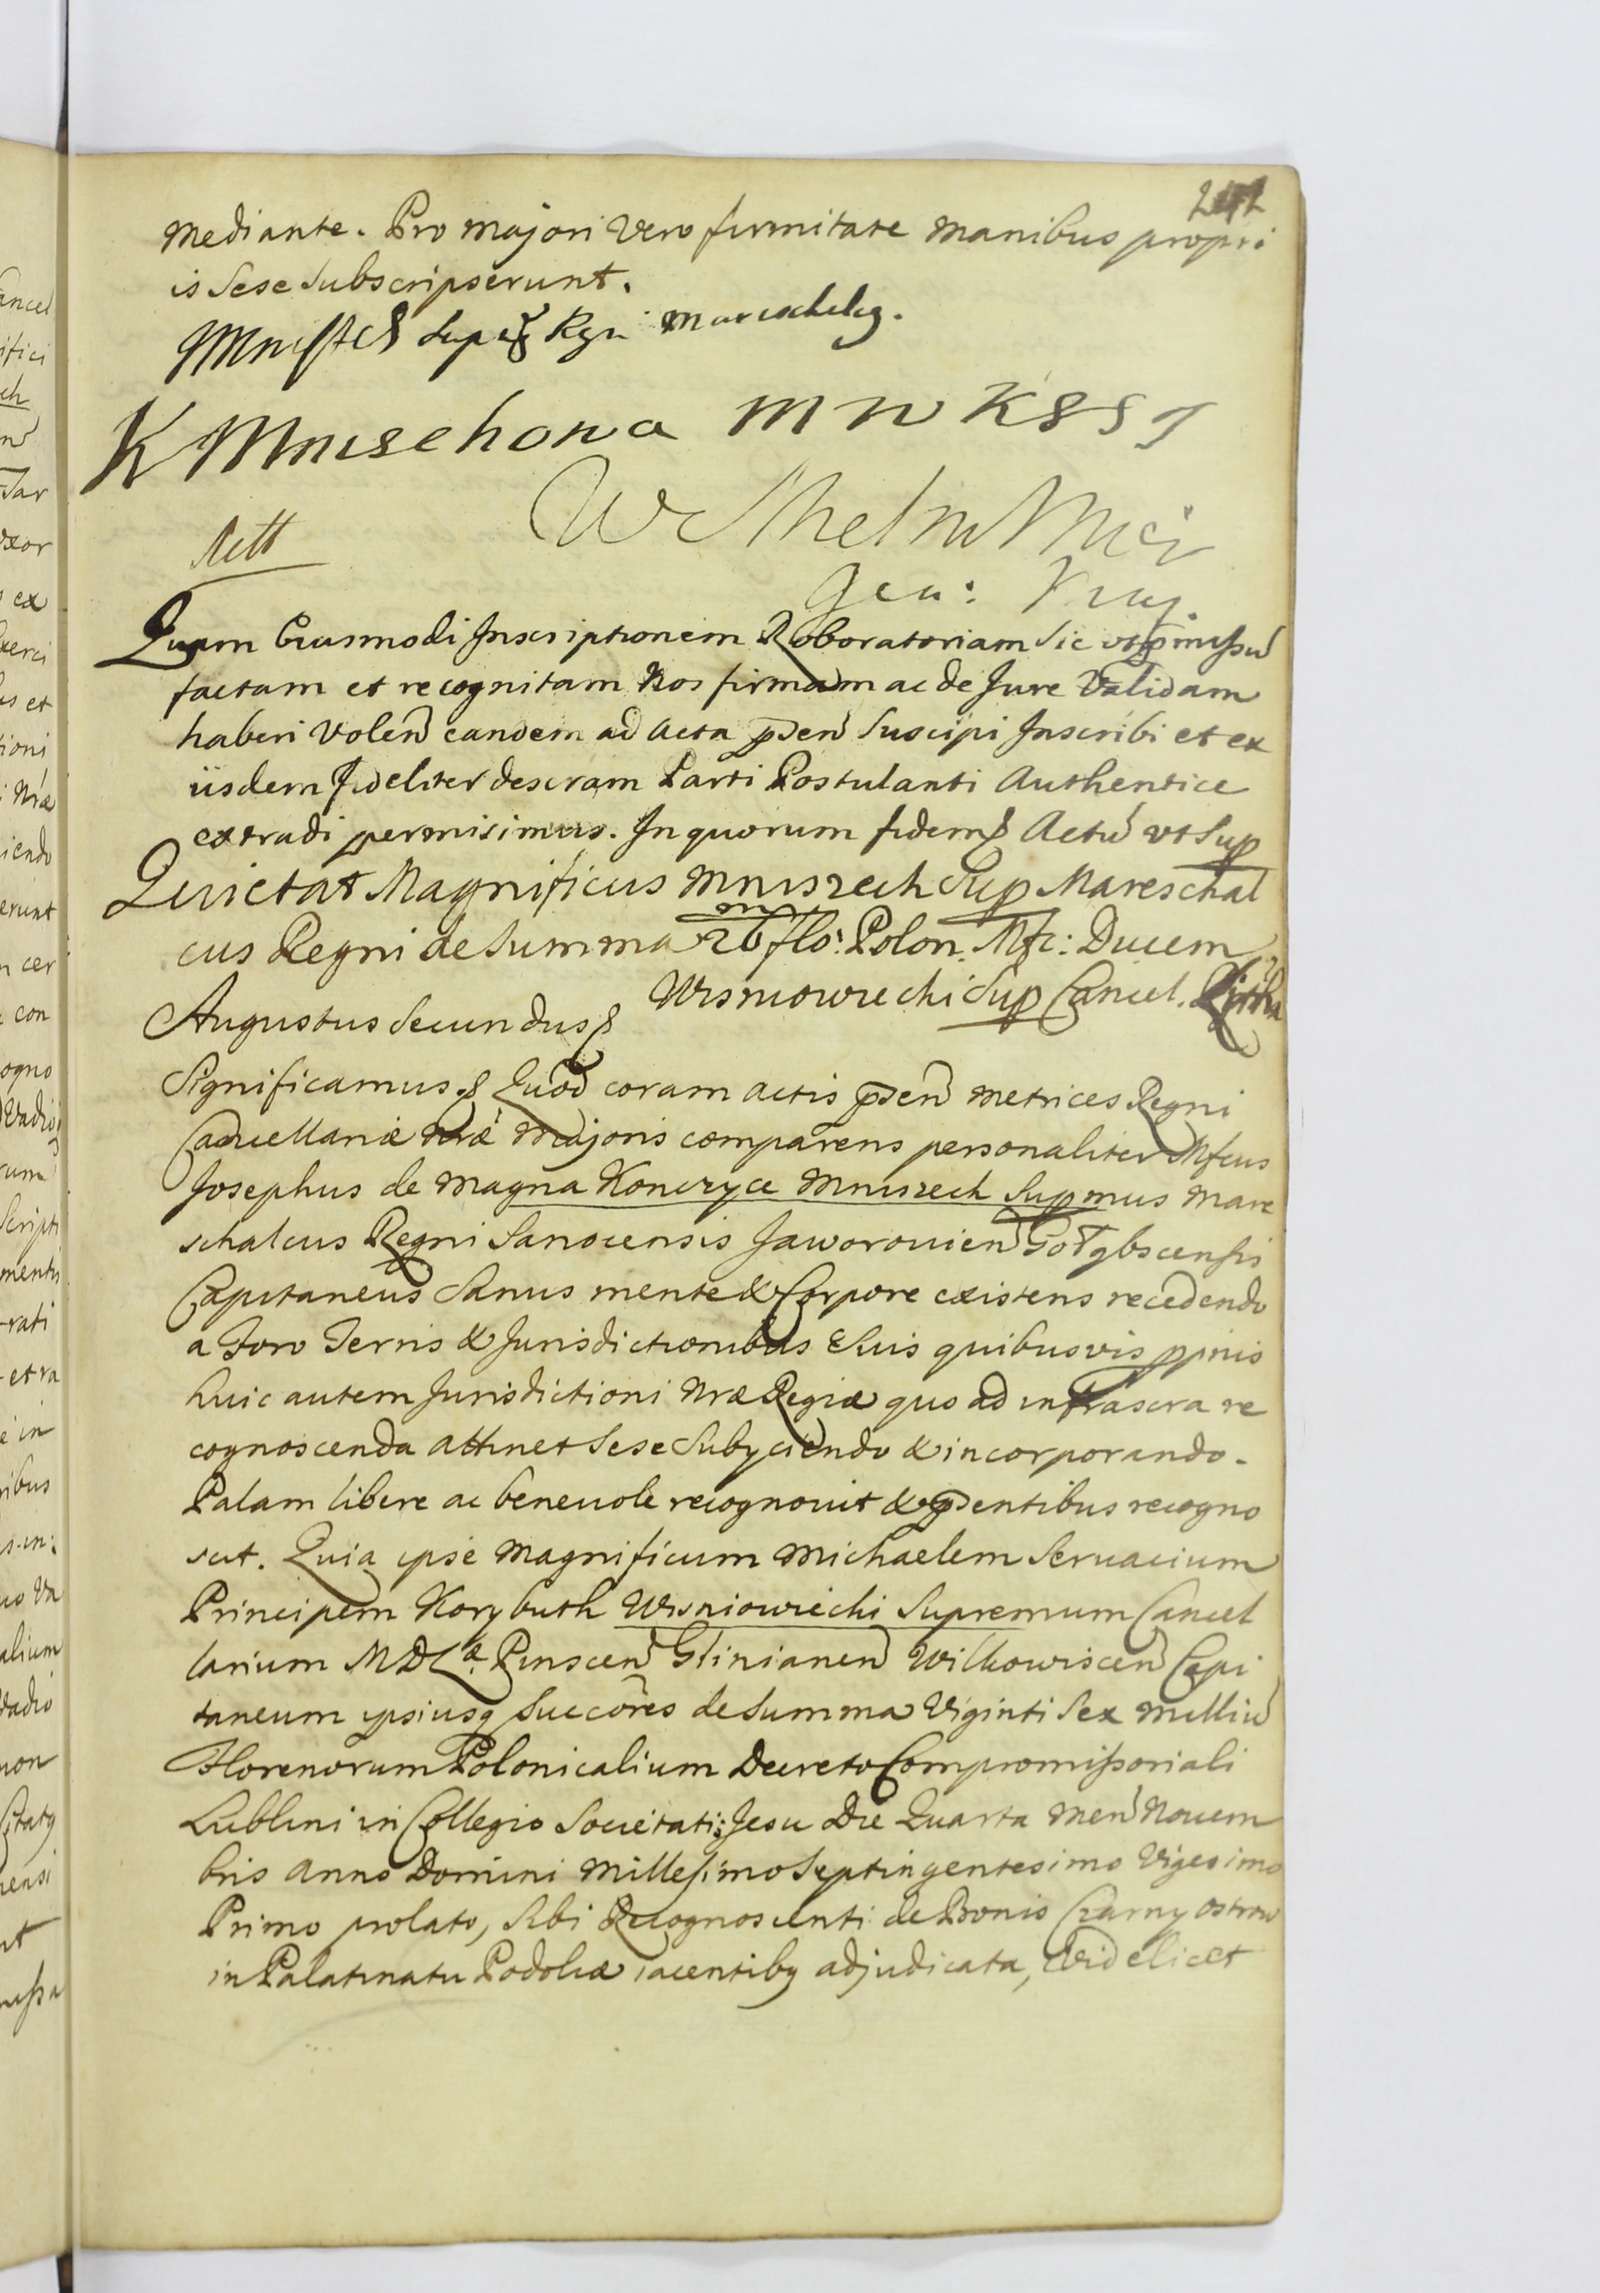 242
Mediante. Pro Majori Vero firmitate Manibus propri
is Sese Subscripserunt.
K Mniszchowa M W K
Quam Eiusmodi Inscriptionem Roboratoriam Sic ut pmissu
factam et recognitam Nos firmam ac de Jure Validam
haberi Volen eandem ad Acta psen Suscipi Inscribi et ex
iisdem fideliter descram Parti Postulanti Authentice
extradi permisimus. In quorum fidem Actu ut Sup
Quietat Magnificus Mniszech Sup Mareschal
cus Regni de Summa 26 flo: Polon. Mfc: Ducem
Wisniowiechi Sup Cancel. Lith
Augustus Secundus
Significamus Quod coram Actis psen Metrices Regni
Cancellariæ Nræ Majoris comparens personaliter Mfcus
Josephus de Magna Konczyce Mniszech Supmus Mare
schalcus Regni Sanocensis Jaworovien Gołąbscensis
Capitaneus Sanus mente & Corpore existens recedendo
a Foro Terris & Jurisdictionibus Suis quibusvis ppriis
huic autem Jurisdictioni Nræ Regiæ quo ad infrascra re
cognoscenda attinet Sese Subyciendo & incorporando.
Palam libere ac benevole recognovit & psentibus recogno
scit. Quia ipse Magnificum Michaelem Servacium
Principem Korybuth Wisniowiechi Supremum Cancel
larium MDL Pinscen Glinianen Wilkowiscen Capi
taneum ipsiusq Succores de Summa Viginti Sex Milliu
Florenorum Polonicalium Decreto Compromissoriali
Lublini in Collegio Societatis Jesu Die Quarta Men Novem
bris Anno Domini Millesimo Septingentesimo Vigesimo
Primo prolato, Sibi Recognoscenti de Bonis Czarny Ostrow
in Palatinatu Podoliæ iacentiby adjudicata, Videlicet